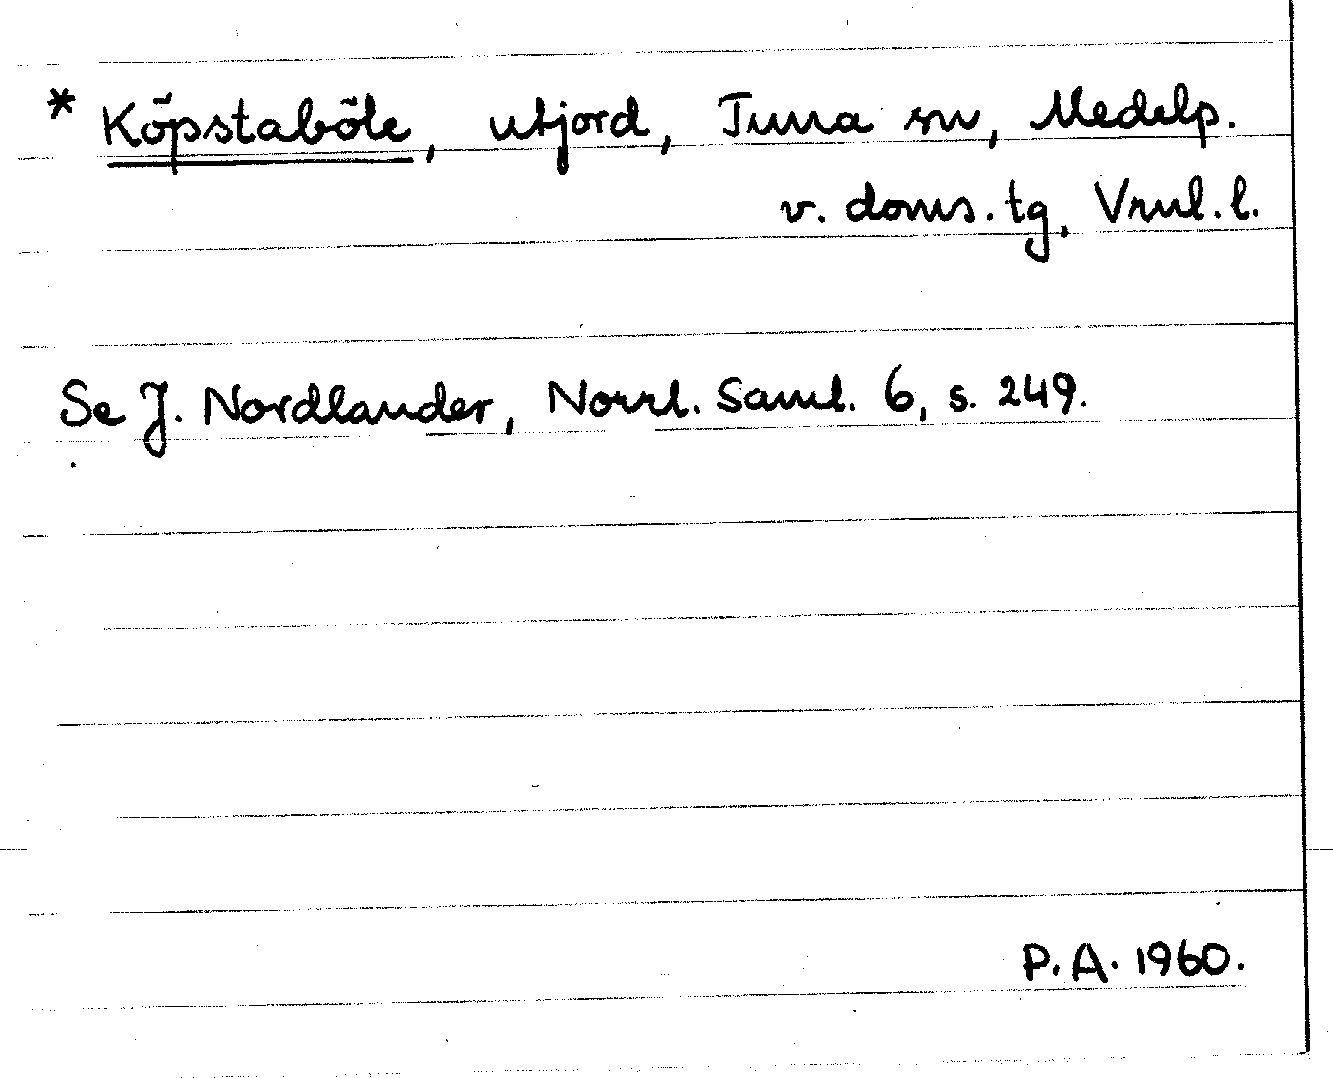 * Köpstaböle, utjord, Tuna sn, Medelp.
v. doms. tg, Vnl. l.
Se J. Nordlander, Norrl. Saml. 6, s. 249.
P.A. 1960.